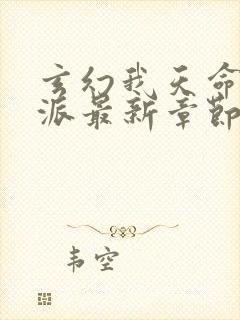 玄幻我天命
派最新章节
韦空